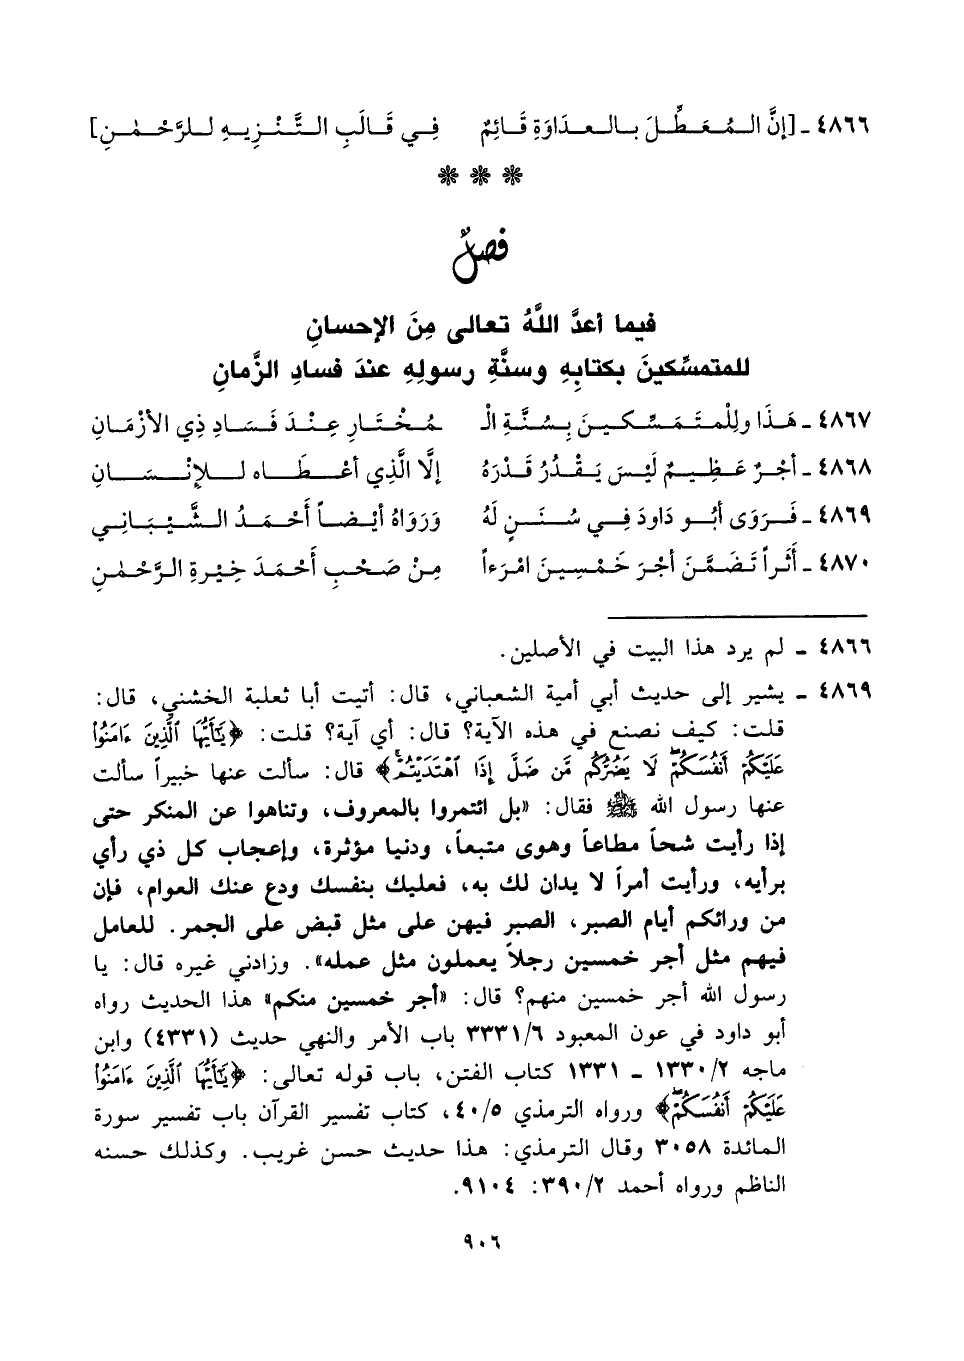 ٤٨٦٦ ـ [إنَّ الـمُـعَـطِّـلَ بـالـعـدَاوَةِ قَـائِـمٌ فِـي قَـالَـبِ الـتَّـنْـزِيـهِ لـلرَّحْـمٰـنِ]
❋ ❋ ❋
فصلٌ
فيما أعدَّ اللَّهُ تعالى مِنَ الإحسانِ
للمتمسِّكينَ بكتابِهِ وسنَّةِ رسولِهِ عندَ فسادِ الزَّمانِ
٤٨٦٧ ـ هَـذَا ولِلْمـتَـمَـسِّـكـيـنَ بـسُـنَّـةِ الْـ مُـخْـتَـارِ عِـنْـدَ فَـسَـادِ ذِي الأزْمَـانِ
٤٨٦٨ ـ أجْـرٌ عَـظِـيـمٌ لَيْـسَ يَـقْـدُرُ قَـدْرَهُ إلَّا الَّـذِي أعْـطَـاه لـلإنْـسَـانِ
٤٨٦٩ ـ فَـرَوَى أبُـو دَاودَ فِـي سُـنَـنٍ لَهُ وَرَوَاهُ أيْـضـاً أَحْـمَـدُ الـشَّـيْـبَـانِـي
٤٨٧٠ ـ أَثَـراً تَـضَـمَّـنَ أجْـرَ خَـمْـسِـيـنَ امْـرَءاً مِـنْ صَـحْـبِ أَحْـمَـدَ خِيْـرةِ الـرَّحْـمٰـنِ
٤٨٦٦ ـ لم يرد هذا البيت في الأصلين.
٤٨٦٩ ـ يشير إلى حديث أبي أمية الشعباني، قال: أتيت أبا ثعلبة الخشني، قال:
قلت: كيف نصنع في هذه الآية؟ قال: أي آية؟ قلت: ﴿يَٰٓأَيُّهَا ٱلَّذِينَ ءَامَنُواْ
عَلَيْكُمْ أَنفُسَكُمْۖ لَا يَضُرُّكُم مَّن ضَلَّ إِذَا ٱهْتَدَيْتُمْۚ﴾ قال: سألت عنها خبيراً سألت
عنها رسول الله ﷺ فقال: «بل ائتمروا بالمعروف، وتناهوا عن المنكر حتى
إذا رأيت شحاً مطاعاً وهوى متبعاً، ودنيا مؤثرة، وإعجاب كل ذي رأي
برأيه، ورأيت أمراً لا يدان لك به، فعليك بنفسك ودع عنك العوام، فإن
من ورائكم أيام الصبر، الصبر فيهن على مثل قبض على الجمر. للعامل
فيهم مثل أجر خمسين رجلاً يعملون مثل عمله». وزادني غيره قال: يا
رسول الله أجر خمسين منهم؟ قال: «أجر خمسين منكم» هذا الحديث رواه
أبو داود في عون المعبود ٣٣٣١/٦ باب الأمر والنهي حديث (٤٣٣١) وابن
ماجه ١٣٣٠/٢ ـ ١٣٣١ كتاب الفتن، باب قوله تعالى: ﴿يَٰٓأَيُّهَا ٱلَّذِينَ ءَامَنُواْ
عَلَيْكُمْ أَنفُسَكُمْۖ﴾ ورواه الترمذي ٤٠/٥، كتاب تفسير القرآن باب تفسير سورة
المائدة ٣٠٥٨ وقال الترمذي: هذا حديث حسن غريب. وكذلك حسنه
الناظم ورواه أحمد ٣٩٠/٢: ٩١٠٤.
٩٠٦